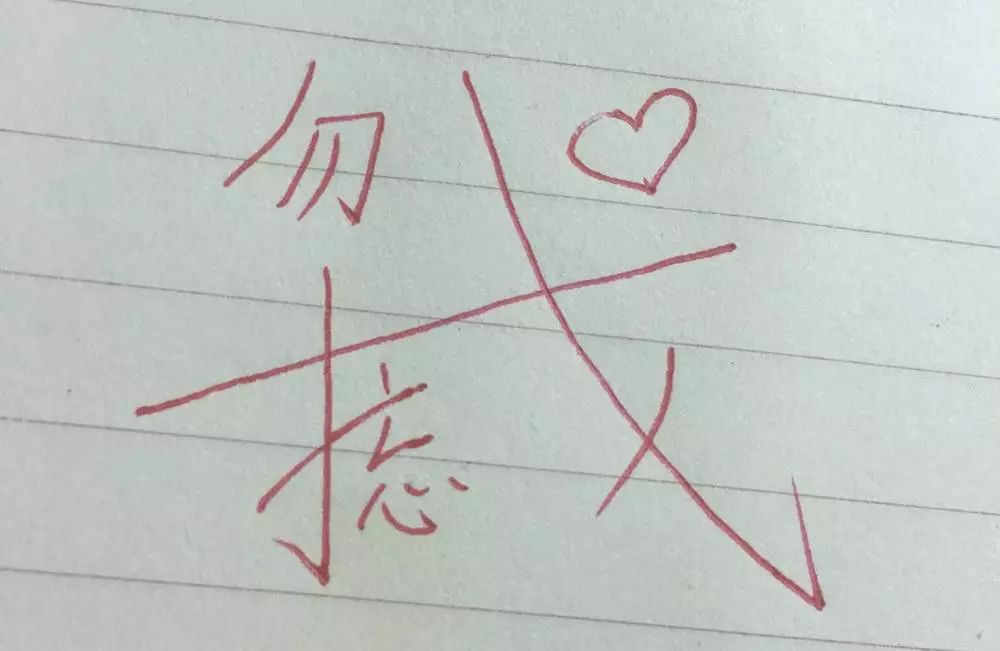 勿忘我